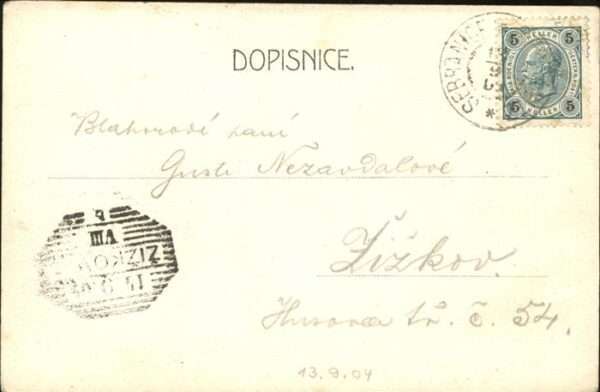 DOPISNICE.
5 HELLER 5
5 HELLER 5
Blahorodé paní
Gusti Nezavdalové
Žižkov.
Husova tř. č. 54.
ŽIŽKOV
VIII
13.9.04